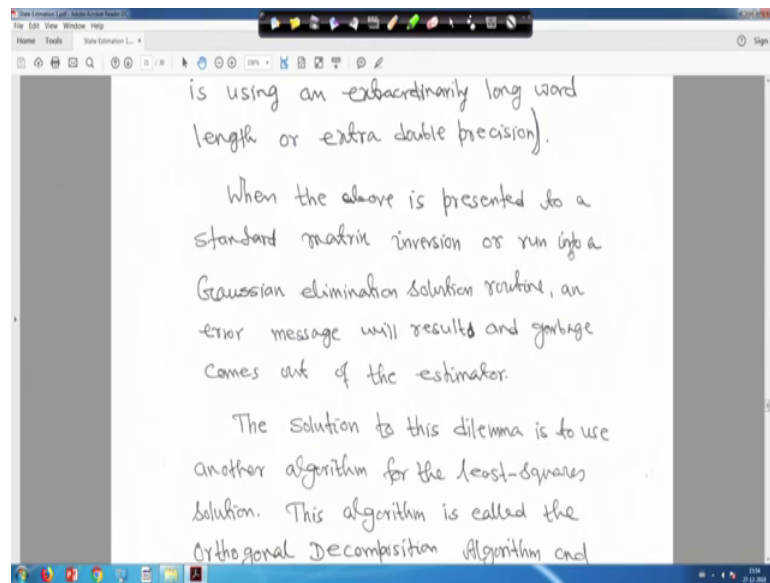 State Estimation 1.pdf - Adobe Acrobat Reader DC
File Edit View Window Help
Home Tools State Estimation 1.... × Sign
is using an extraordinarily long word
length or extra double precision).
When the above is presented to a
standard matrix inversion or run into a
Gaussian elimination solution routine, an
error message will results and garbage
comes out of the estimator.
The solution to this dilemma is to use
another algorithm for the least-squares
solution. This algorithm is called the
Orthogonal Decomposition Algorithm and
15:54